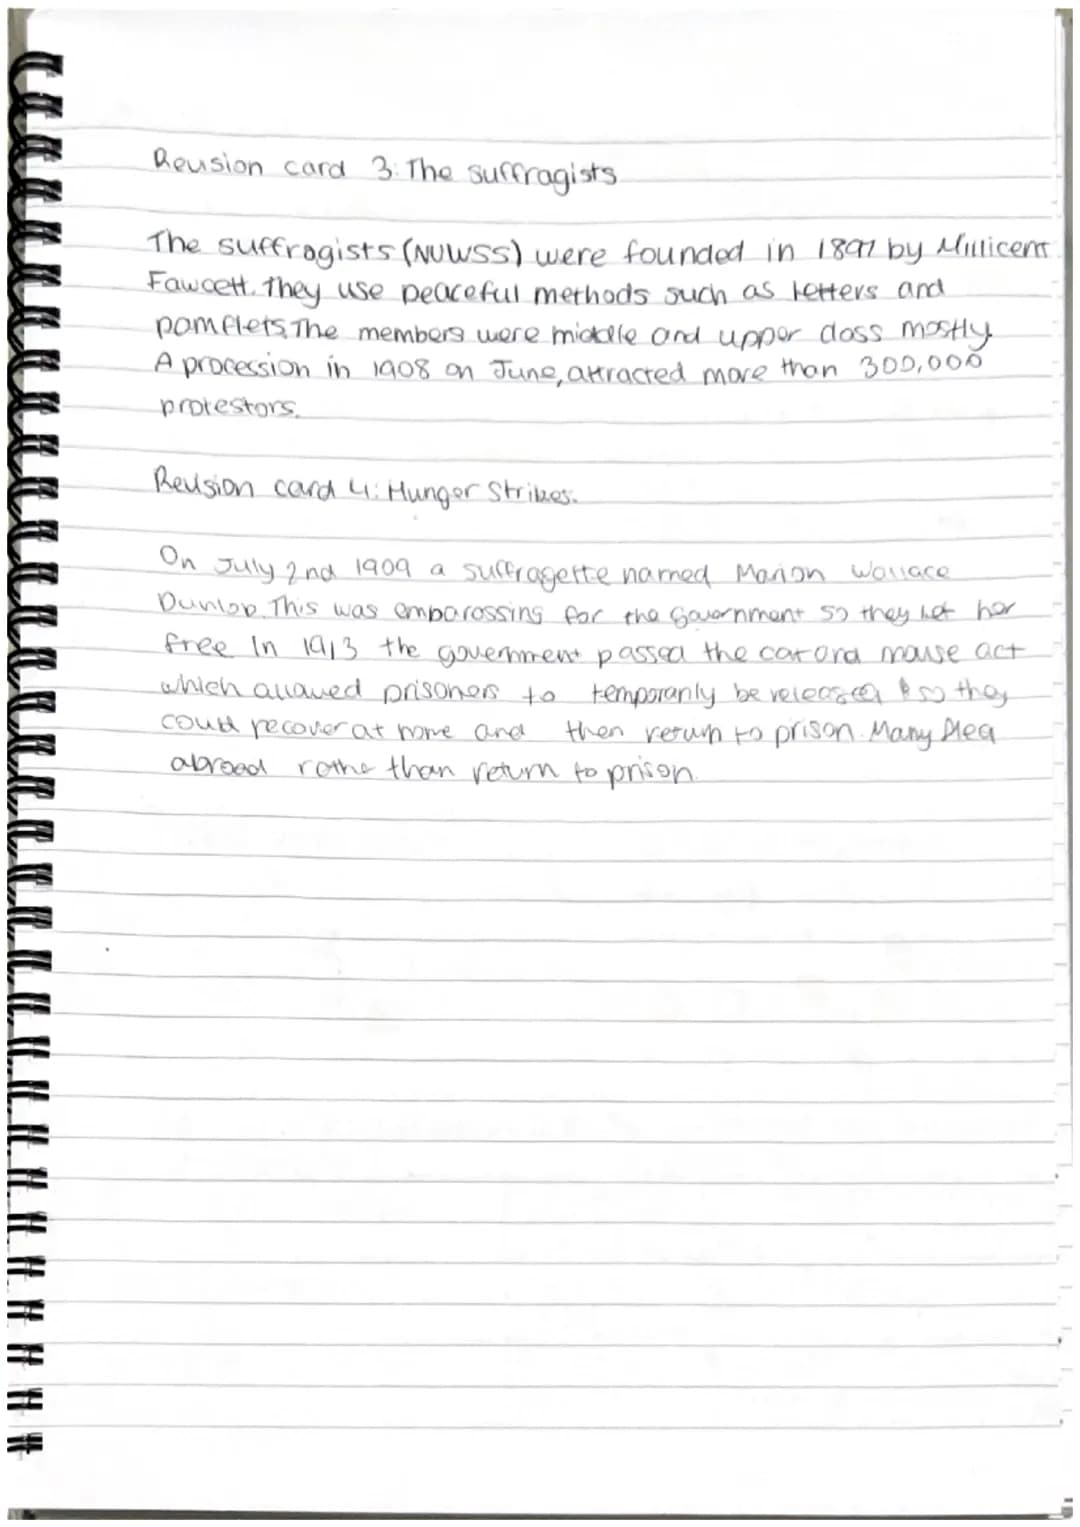 Revision card 3: The suffragists
The suffragists (NUWSS) were founded in 1897 by Millicent
Fawcett. They use peaceful methods such as letters and
pamflets, The members were middle and upper class mostly.
A procession in 1908 on June, attracted more than 300,000
protestors.
Revision card 4: Hunger Strikes.
On July 2nd 1909 a suffragette named Marion Wallace
Dunlop. This was embarossing for the Government so they let her
free In 1913 the government passed the cat and mouse act
which allowed prisoners to temporarily be released so they
could recover at home and then return to prison. Many fled
abroad rathe than return to prison.